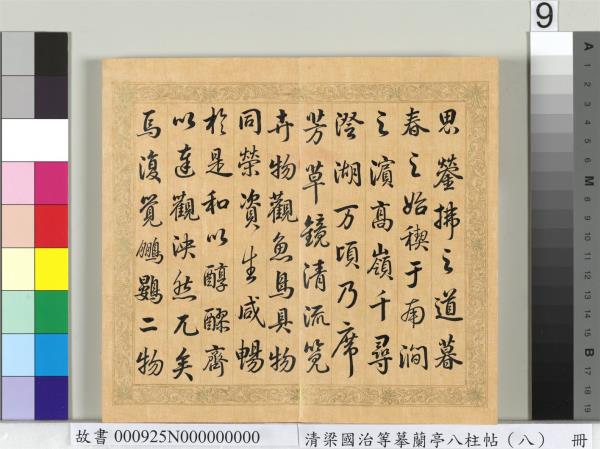 9
思鎣拂之道暮
春之始禊于南澗
之濱高嶺千尋
澄湖万頃乃席
芳草鏡清流覽
卉物觀魚鳥具物
同榮資生咸暢
於是和以醇醪齊
以達觀泱然兀矣
焉復覺鵬鷃二物
A 1 2 3 4 5 6 M 8 9 10 11 12 13 14 15 B 17 18 19
故書 000925N000000000
清梁國治等摹蘭亭八柱帖（八） 冊